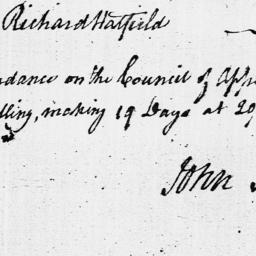 Richard Hatfield
ndance on the Council of App
lling, making 19 Days at 20/
John